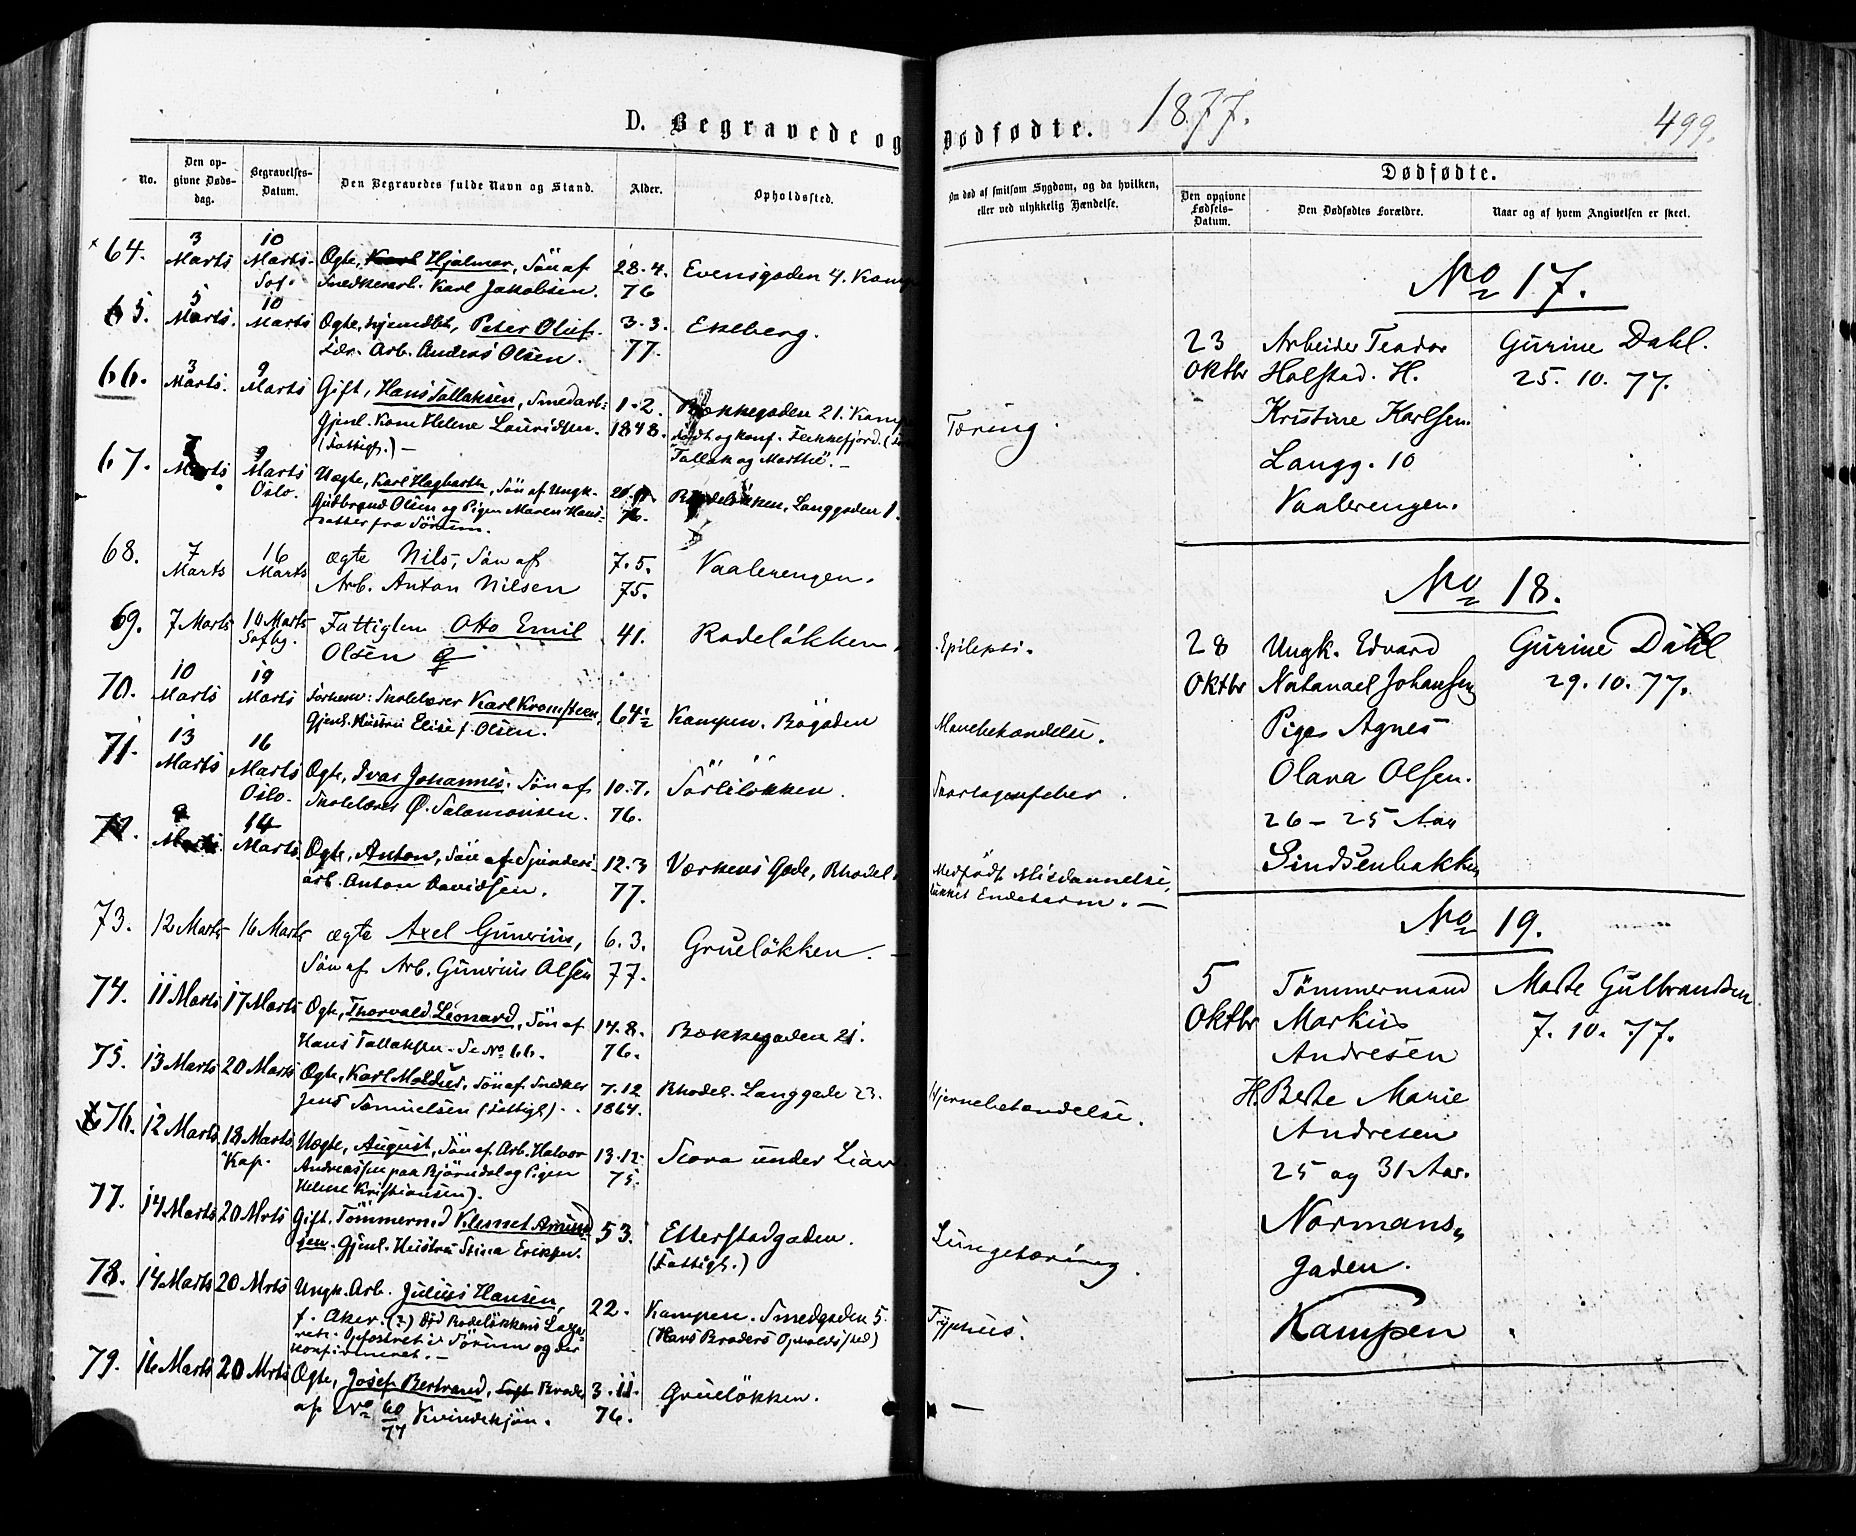 D. Begravede og Dødfødte. 1877.
499.
No.
Den opgivne Døds-dag.
Begravelses-Datum.
Den Begravedes fulde Navn og Stand.
Alder.
Opholdssted.
Om død af smitsom Sygdom, og da hvilken,
eller ved ulykkelig Hændelse.
Dødfødte.
Den opgivne Fødsels-Datum.
Den Dødfødtes Forældre.
Naar og af hvem Angivelsen er skeet.
64. 3 Marts 10 Marts.
Ægte, Karl Hjalmar, Søn af
Snedkerarb. Karl Jakobsen.
28.4.
76
Evensgaden 4. Kamp
65. 5 Marts. 10 Marts
Ægte, hjemdøbt, Peter Oluf.
Arb. Anders Olsen.
3.3.
77.
Ekeberg.
66. 3 Marts. 9 Marts
Gift, Hans Tallaksen, Smedarb.
Gjenl. Kone Helene Lauridsen.
(Fattigh.) —
1.2.
1848.
Bækkegaden 21. Kamp
født og konf. Flekkefjord.
Tallak og Marthe. —
Tæring.
67. Marts 9 Marts
Oslo.
Uægte, Karl Hagbarth, Søn af Ungk.
Gudbrand Olsen og Pigen Maren Hans-
datter fra Sørum.
76.
Rodeløkken, Langgaden 1.
68. 7 Marts 16 Marts
Ægte Nils, Søn af
Arb. Anton Nilsen
7.5.
75.
Vaalerengen.
69. 7 Marts 10 Marts
Fattiglem Otto Emil
Olsen
41.
Rodeløkken
Epilepsi.
70. 10 Marts 19 Marts
Skolelærer Karl Kromsteen,
Gjenl. Hustru Elise f. Olsen.
64
Kampen. Bøgaden
71. 13 Marts 16 Marts
Oslo.
Ægte, Ivar Johannes. Søn af
Skolelærer Ø. Salamonsen.
10.7.
76.
Sörliløkken.
Skarlagensfeber.
72. 9 Marts. 14 Marts
Ægte, Anton, Søn af
arb. Anton Davidsen.
12.3
77.
Værkens Gade, Rhodel.
Medfødt Misdannelse,
lukket Endetarm. —
73. 12 Marts 16 Marts
Ægte Axel Gunerius,
Søn af Arb. Gunerius Olsen
6.3.
77.
Grueløkken. —
74. 11 Marts 17 Marts
Ægte, Thorvald Leonard, Søn af
Hans Tallaksen. Se No 66.
14.8.
76.
Bækkegaden 21.
75. 13 Marts 20 Marts
Ægte, Karl Moldius, Søn af Snedker
Jens Samuelsen (Fattigh).
7.12
1864.
Rhodel. Langgade 23.
Hjernebetændelse.
76. 12 Marts 18 Marts.
Kap.
Uægte, August, Søn af Arb. Halvor
Andreassen paa Bjørndal og Pigen
Helene Kristiansen).
13.12.
75.
under Lian
77. 14 Marts 20 Mrts
Gift. Tömmermd Klemet Amund
sen. Gjenl. Hustru Stina Eriksen.
53.
Etterstadgaden.
(Fattigh.)
Lungetæring.
78. 14 Marts 20 Mrts
Ungk. Arb. Julius Hansen,
f. Aker. (?) Död Rodeløkkens Laza-
ret. Opfostret i Sørum og der
konfirmeret. —
22.
Kampen. Smedgaden 5.
(Hans Broders Opholdssted)
Typhus.
79. 16 Marts 20 Mrts
Ægte, Josef Bertrand, Broder
af No 60/77 Kvindekjøn.
3.11.
76.
Grueløkken.
—
No 17.
23 Oktbr
Arbeider Teodor
Halstad. H.
Kristine Karlsen.
Langg. 10
Vaalerengen.
Gurine Dahl.
25.10.77.
No 18.
28 Oktbr
Ungk. Edvard
Natanael Johansen
Pige Agnes
Olava Olsen.
26 – 25 Aar
Gurine Dahl
29.10.77.
No 19.
5 Oktbr
Tömmermand
Markus
Andresen
H. Berte Marie
Andresen
25 og 31 Aar.
Normans-
gaden.
Kampen
Marte Gulbrandsen
7.10.77.